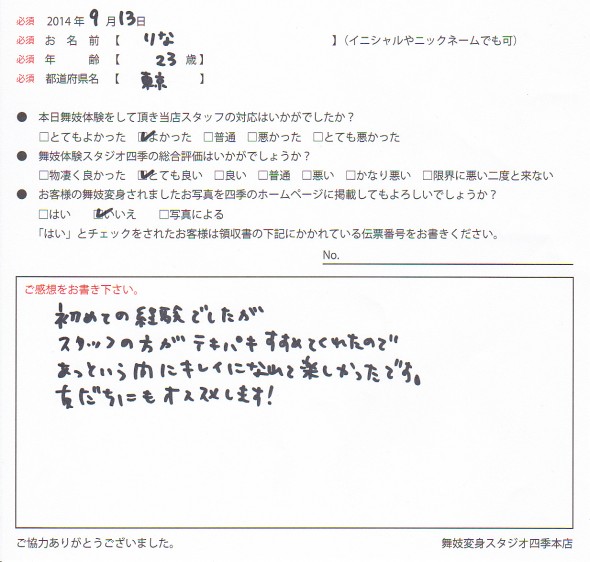 必須 2014年 9月13日
必須 お名前【 りな 】(イニシャルやニックネームでも可)
必須 年齢【 23歳】
必須 都道府県名【 東京 】
● 本日舞妓体験をして頂き当店スタッフの対応はいかがでしたか?
□とてもよかった ☑よかった □普通 □悪かった □とても悪かった
● 舞妓体験スタジオ四季の総合評価はいかがでしょうか?
□物凄く良かった ☑とても良い □良い □普通 □悪い □かなり悪い □限界に悪い二度と来ない
● お客様の舞妓変身されましたお写真を四季のホームページに掲載してもよろしいでしょうか?
□はい ☑いいえ □写真による
「はい」とチェックをされたお客様は領収書の下記にかかれている伝票番号をお書きください。
No.
ご感想をお書き下さい。
初めての経験でしたが
スタッフの方がテキパキすすめてくれたので
あっという間にキレイになれて楽しかったです。
友だちにもオススメします!
ご協力ありがとうございました。 舞妓変身スタジオ四季本店